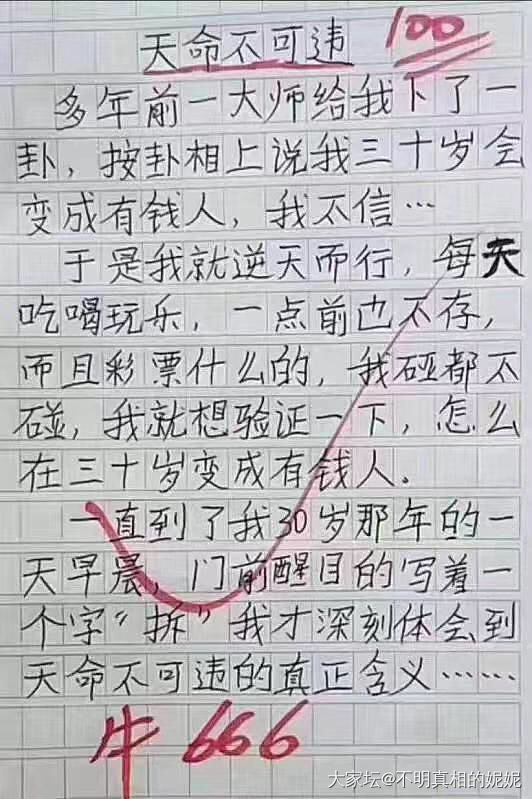 天命不可违 100
多年前一大师给我下了一
卦，按卦相上说我三十岁会
变成有钱人，我不信…
于是我就逆天而行，每天
吃喝玩乐，一点前也不存，
而且彩票什么的，我碰都不
碰，我就想验证一下，怎么
在三十岁变成有钱人.
一直到了我30岁那年的一
天早晨，门前醒目的写着一
个字“拆”我才深刻体会到
天命不可违的真正含义……
牛 666
大家坛@不明真相的妮妮